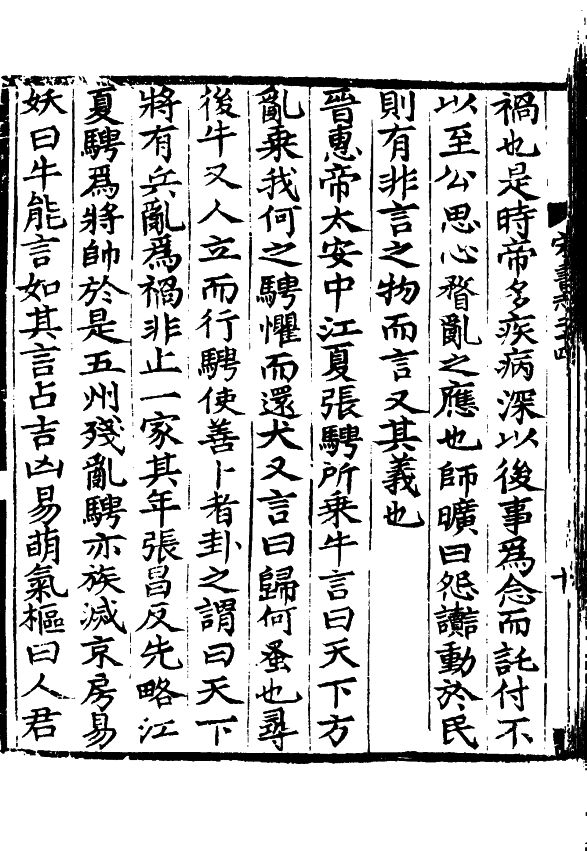 禍也是時帝多疾病深以後事爲念而託付不
以至公思心瞀亂之應也師曠曰怨讟動於民
則有非言之物而言又其義也
晉惠帝太安中江夏張騁所乗牛言曰天下方
亂乗我何之騁懼而還犬又言曰歸何蚤也尋
後牛又人立而行騁使善卜者卦之謂曰天下
將有兵亂爲禍非止一家其年張昌反先略江
夏騁爲將帥於是五州殘亂騁亦族滅京房易
妖曰牛能言如其言占吉凶易萌氣樞曰人君